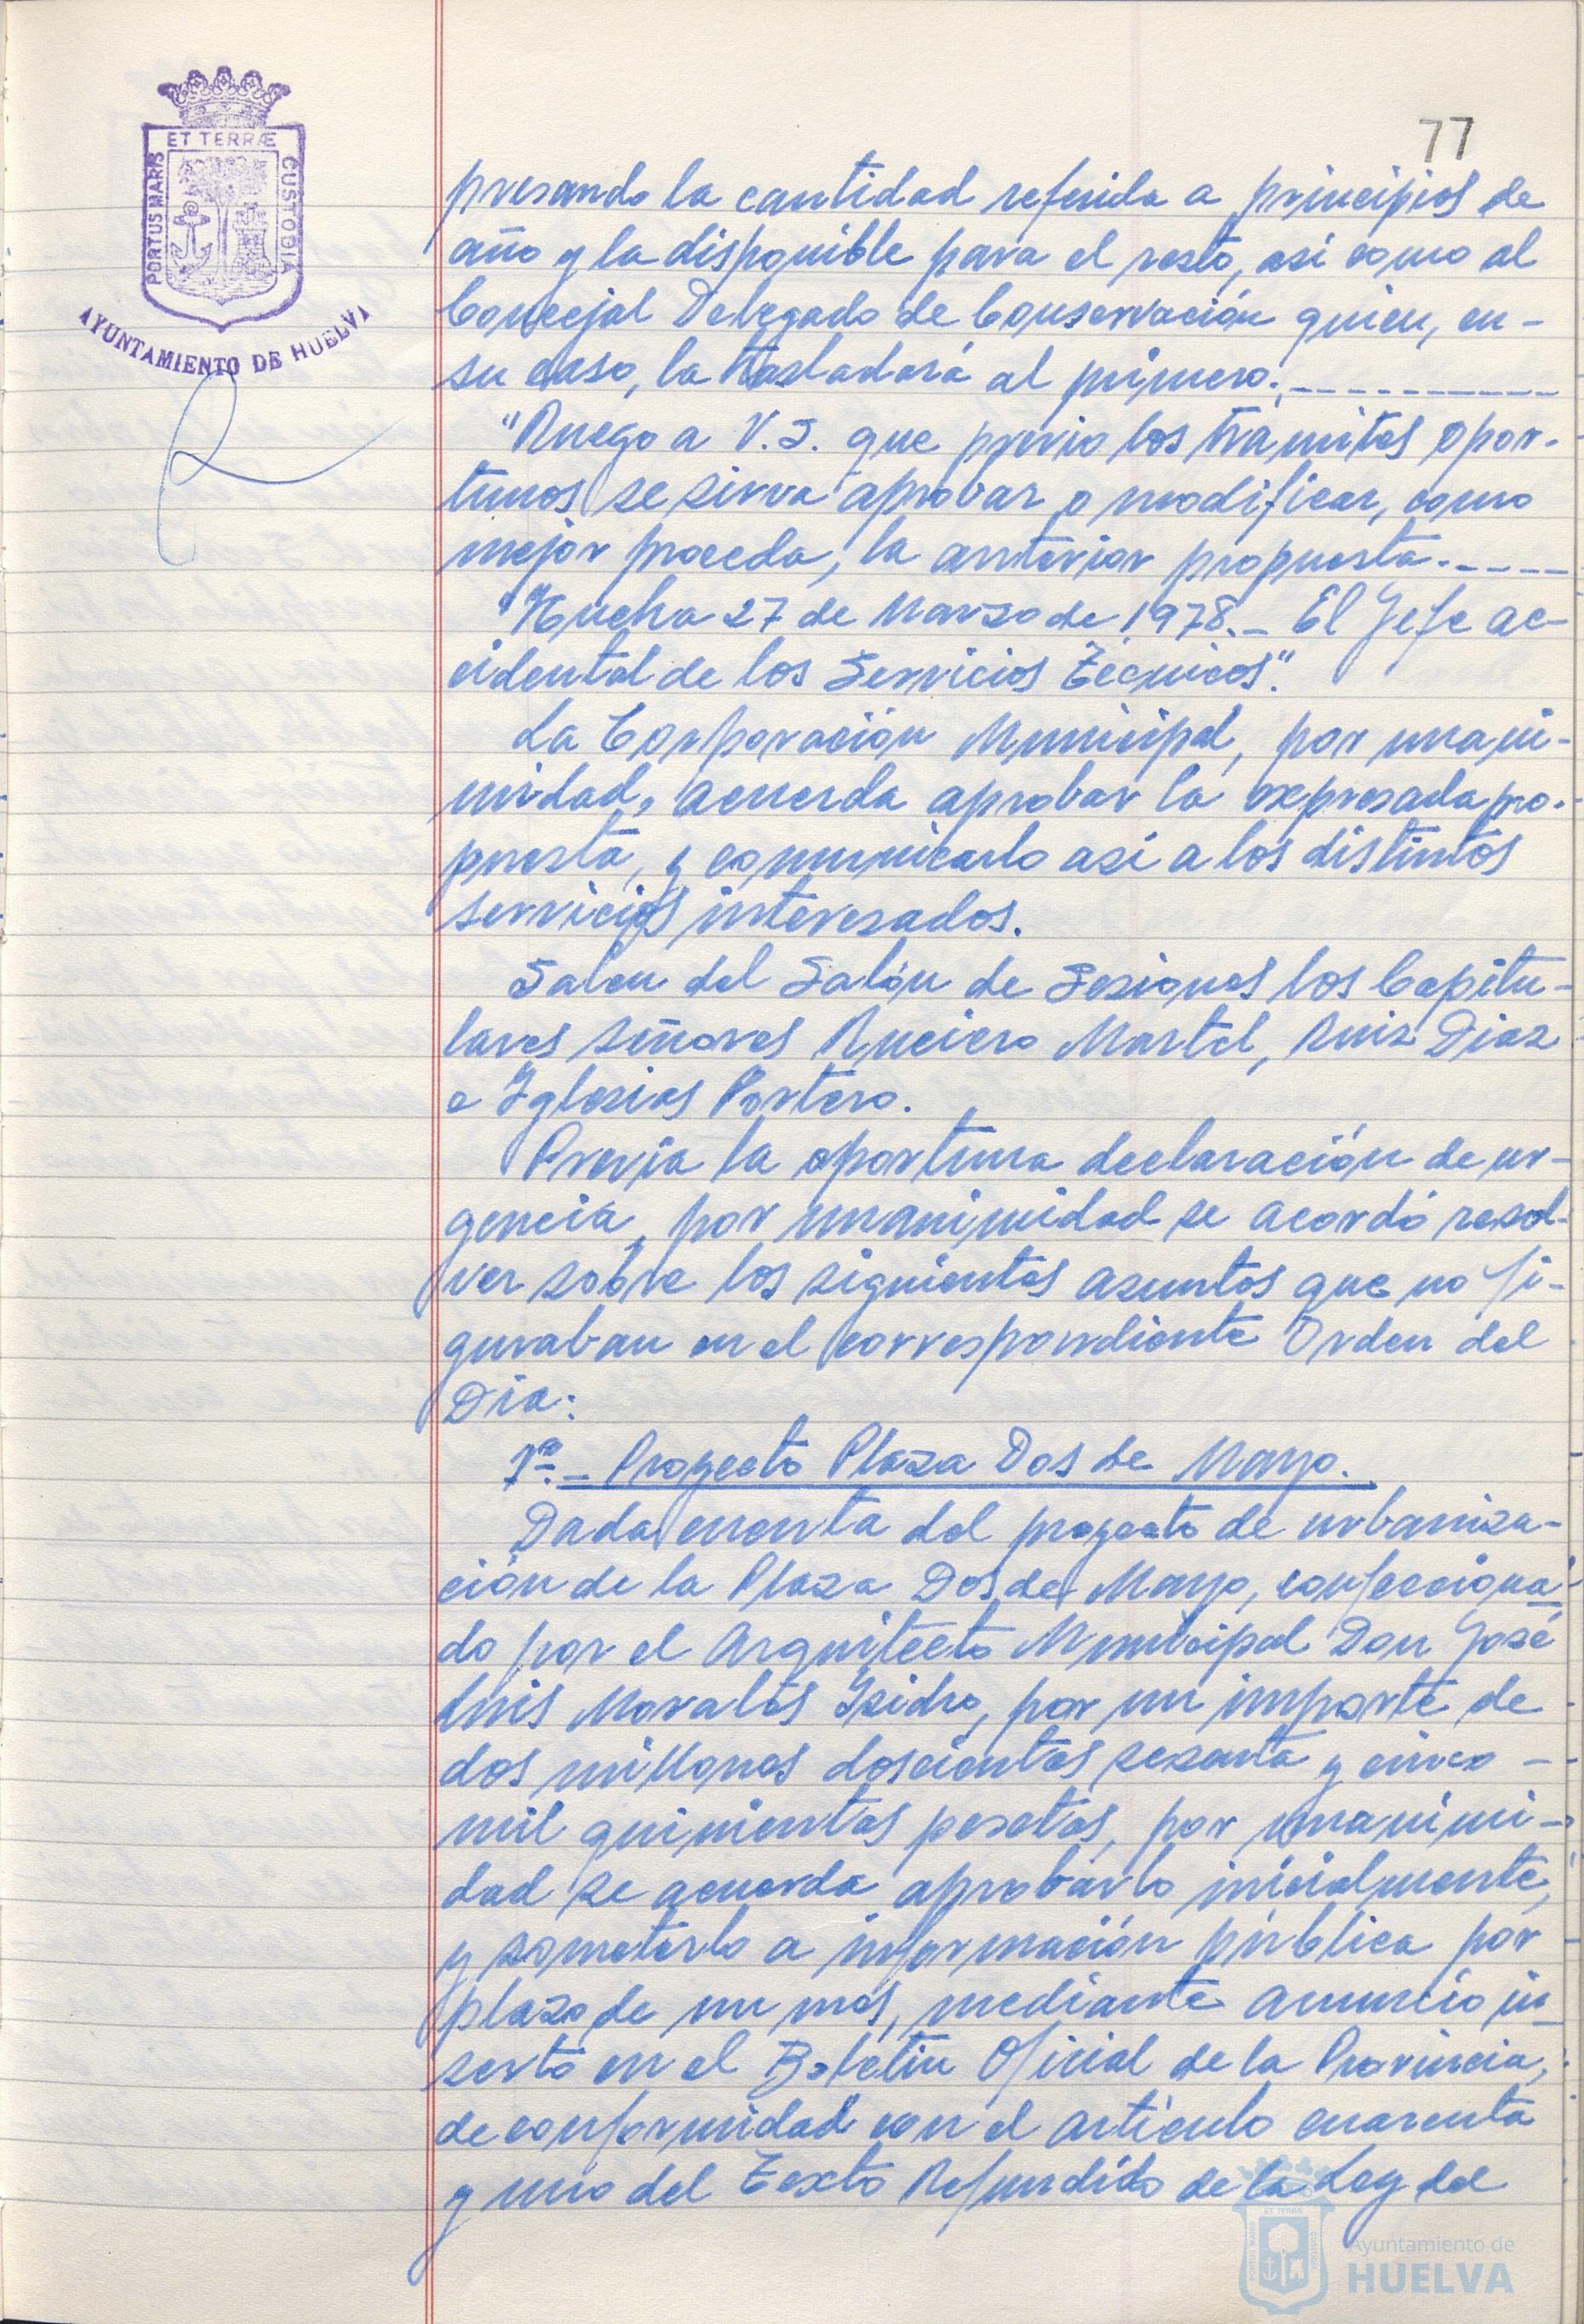 77
ET TERRÆ
PORTUS MARIS
CUSTODIA
AYUNTAMIENTO DE HUELVA
presando la cantidad referida a principios de
año y la disponible para el resto, asi como al
Concejal Delegado de Conservación quien, en-
su caso, la trasladará al primero.
"Ruego a V.S. que previo los tramites opor-
tunos se sirva aprobar o modificar, como
mejor proceda, la anterior propuesta.
"Huelva 27 de Marzo de 1978.- El Jefe ac-
cidental de los Servicios Técnicos".
La Corporación Municipal, por unani-
midad, acuerda aprobar la expresada pro-
puesta, y comunicarlo asi a los distintos
servicios interesados.
Salen del Salón de Sesiones los Capitu-
lares señores Ruciero Martel, Ruiz Diaz
e Iglesias Portero.
Previa la oportuna declaración de ur-
gencia, por unanimidad se acordó resol-
ver sobre los siguientes asuntos que no fi-
guraban en el correspondiente Orden del
Dia:
1º.- Proyecto Plaza Dos de Mayo.
Dada cuenta del proyecto de urbaniza-
ción de la Plaza Dos de Mayo, confecciona-
do por el Arquitecto Municipal Don José
Luis Morales Isidro, por un importe de
dos millones doscientas sesenta y cinco -
mil quinientas pesetas, por unanimi-
dad se acuerda aprobarlo inicialmente,
y someterlo a información pública por
plazo de un mes, mediante anuncio in-
serto en el Boletín Oficial de la Provincia,
de conformidad con el articulo cuarenta
y uno del Texto Refundido de la Ley del
Ayuntamiento de
HUELVA